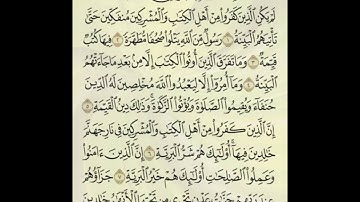 لَمْ يَكُنِ الَّذِينَ كَفَرُوا مِنْ أَهْلِ الْكِتَٰبِ وَالْمُشْرِكِينَ مُنفَكِّينَ حَتَّىٰ
تَأْتِيَهُمُ الْبَيِّنَةُ ١ رَسُولٌ مِّنَ اللَّهِ يَتْلُوا صُحُفًا مُّطَهَّرَةً ٢ فِيهَا كُتُبٌ
قَيِّمَةٌ ٣ وَمَا تَفَرَّقَ الَّذِينَ أُوتُوا الْكِتَٰبَ إِلَّا مِنۢ بَعْدِ مَا جَاءَتْهُمُ
الْبَيِّنَةُ ٤ وَمَا أُمِرُوا إِلَّا لِيَعْبُدُوا اللَّهَ مُخْلِصِينَ لَهُ الدِّينَ
حُنَفَاءَ وَيُقِيمُوا الصَّلَوٰةَ وَيُؤْتُوا الزَّكَوٰةَ وَذَٰلِكَ دِينُ الْقَيِّمَةِ ٥
إِنَّ الَّذِينَ كَفَرُوا مِنْ أَهْلِ الْكِتَٰبِ وَالْمُشْرِكِينَ فِي نَارِ جَهَنَّمَ
خَٰلِدِينَ فِيهَا أُولَٰئِكَ هُمْ شَرُّ الْبَرِيَّةِ ٦ إِنَّ الَّذِينَ ءَامَنُوا
وَعَمِلُوا الصَّٰلِحَٰتِ أُولَٰئِكَ هُمْ خَيْرُ الْبَرِيَّةِ ٧ جَزَاؤُهُمْ
عِندَ رَبِّهِمْ جَنَّٰتُ عَدْنٍ تَجْرِي مِن تَحْتِهَا الْأَنْهَٰرُ خَٰلِدِينَ